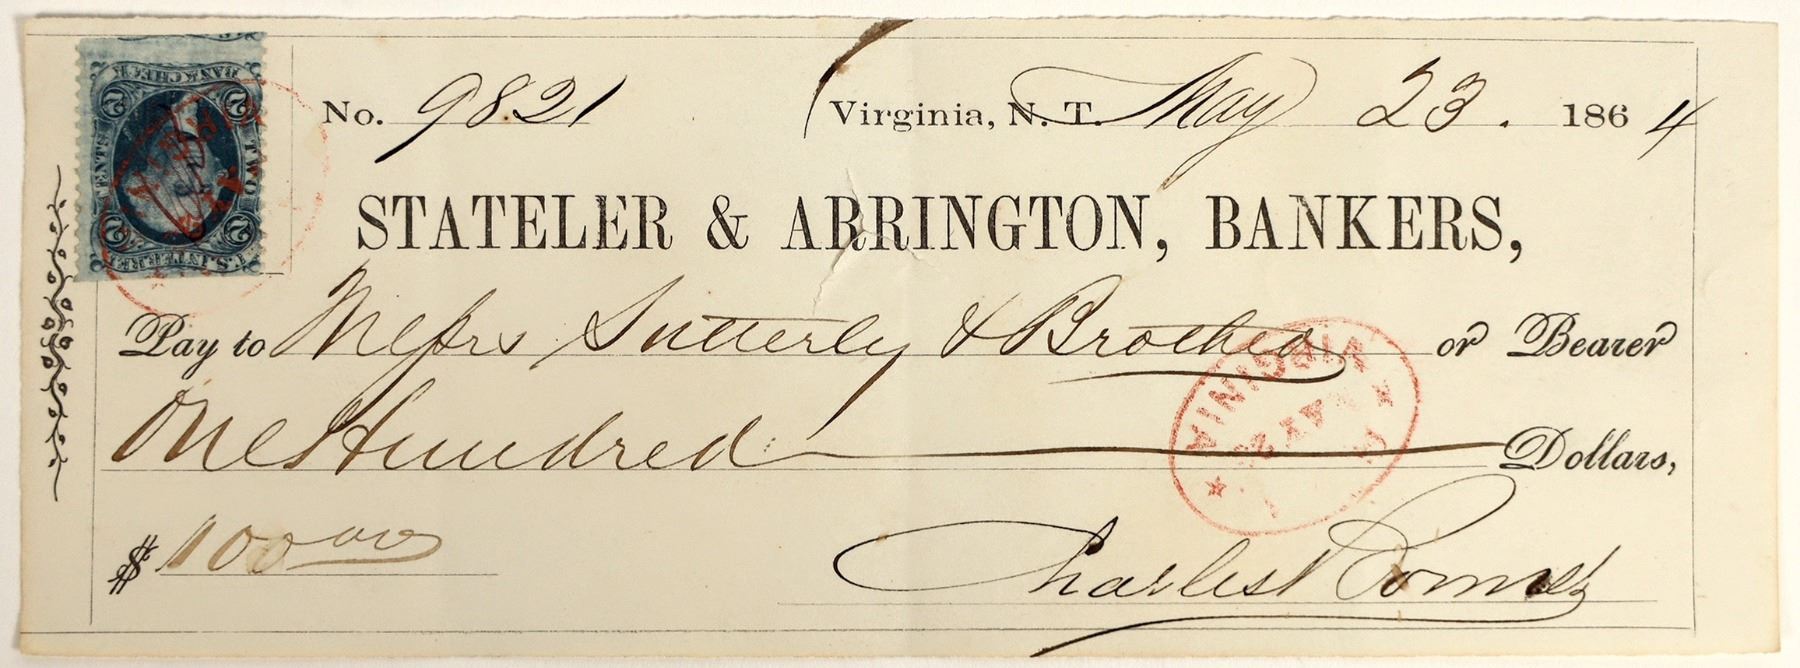 BANK CHECK
2 2
CENTS TWO
2 2
U.S. INTER. REV.
No. 9821 Virginia, N. T. May 23. 1864
STATELER & ARRINGTON, BANKERS,
Pay to Messrs Sutterly & Brothers or Bearer
One Hundred Dollars,
$ 100 00
VIRGINIA
MAY 23
Charles